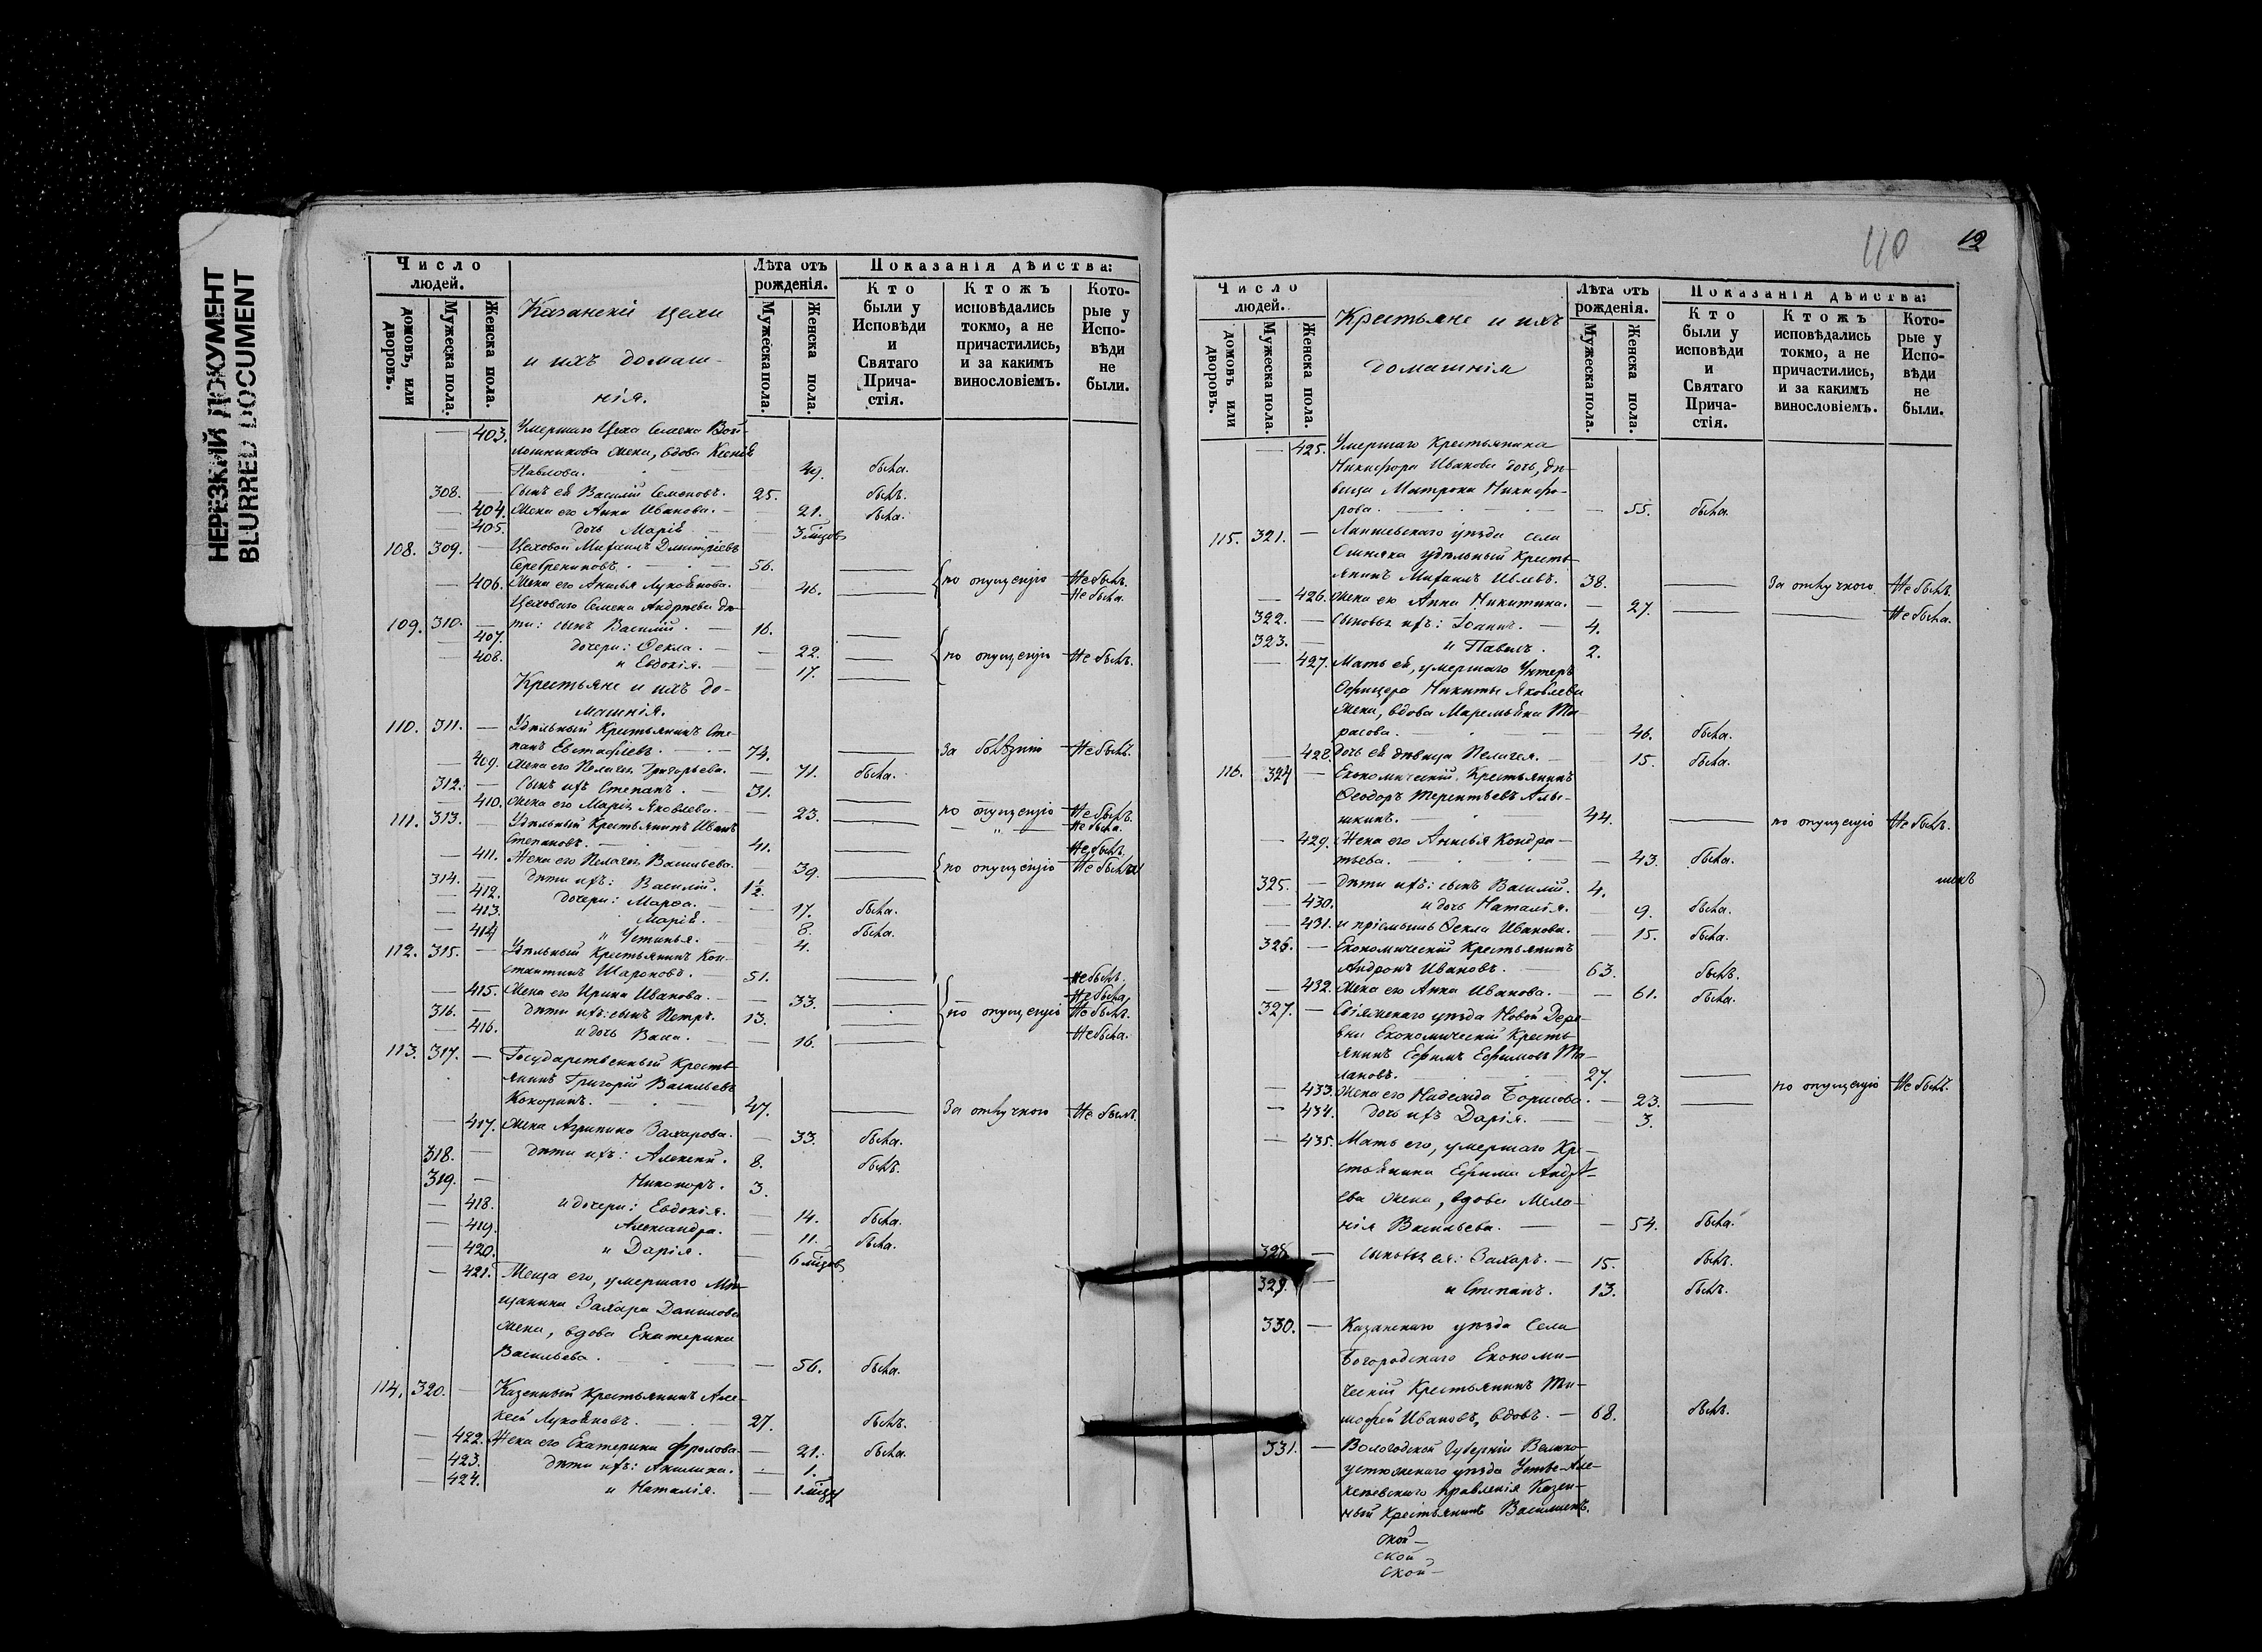 НЕРЕЗКИЙ ДОКУМЕНТ
BLURRED DOCUMENT
Число людей.
домовъ, или дворовъ.
Мужеска пола.
Женска пола.
Казанскіи цехи
и ихъ домаш-
нія.
Лѣта отъ рожденія.
Мужеска пола.
Женска пола.
Показанія дѣйства:
Кто были у Исповѣди и Святаго Прича-стія.
Ктожъ исповѣдались токмо, а не причастились, и за какимъ винословіемъ.
Кото-рые у Испо-вѣди не были.
— 403. Умершаго Цеха Семена Вой-
лошникова жена, вдова Ксенія
Павлова. 49. была.
308. — Сынъ ея Василій Семеновъ. 25. былъ.
— 404. Жена его Анна Иванова. — 21. была.
— 405. дочь Марія 3 мѣсцовъ
108. 309. — Цеховой Михаилъ Дмитріевъ
Серебрениковъ. 56. по опущенію Не былъ.
— 406. Жена его Анисья Лукоянова. 46. Не была.
Цеховаго Семена Андреева дѣ-
109. 310. — ти: сынъ Василій. 16.
— 407. дочери: Ѳекла. — 22. по опущенію Не былъ.
— 408. и Евдокія. — 17.
Крестьяне и ихъ до-
машнія.
110. 311. — Удѣльный Крестьянинъ Сте-
панъ Евстафіевъ. 74. За болѣзнію Не былъ.
— 409. Жена его Пелагея Григорьева. — 71. была.
312. — Сынъ ихъ Степанъ. 31. по опущенію Не былъ.
— 410. Жена его Марія Яковлева. — 23. — „ — Не была.
111. 313. — Удѣльный Крестьянинъ Иванъ
Степановъ. 41. Не былъ.
— 411. Жена его Пелагея Васильева. — 39. по опущенію Не была
314. — дѣти ихъ: Василій. 1½.
— 412. дочери: Марѳа. — 17. была.
— 413. Марія. — 8. была.
— 414 и Устинья. 4.
112. 315. — Удѣльный Крестьянинъ Кон-
стантинъ Шароновъ. 51. Не былъ.
— 415. Жена его Ирина Иванова. — 33. Не была,
316. — дѣти ихъ: сынъ Петръ. 13. по опущенію Не былъ.
— 416. и дочь Васа. — 16. Не была.
113. 317. — Государственный Кресть-
янинъ Григорій Васильевъ
Кокоринъ. 47. За отлучкого Не былъ.
— 417. Жена Агрипина Захарова. — 33. была.
318. — дѣти ихъ: Алексѣй. 8. былъ.
319. — Никоноръ. 3.
— 418. и дочери: Евдокія. — 14. была.
— 419. Александра. — 11. была.
— 420. и Дарія. — 6 мѣсцовъ
— 421. Теща его, умершаго Мѣ-
щанина Захара Данилова
жена, вдова Екатерина
Васильева. — 56. была.
114. 320. — Казенный Крестьянинъ Але-
ксѣй Лукояновъ. 27. былъ.
— 422. Жена его Екатерина Фролова. — 21. была.
— 423. дѣти ихъ: Акилина. — 1.
— 424. и Наталія. — 1 мѣсц
110
12
Число людей.
домовъ или дворовъ.
Мужеска пола.
Женска пола.
Крестьяне и ихъ
домашнія
Лѣта отъ рожденія.
Мужеска пола.
Женска пола.
Показанія дѣйства:
Кто были у исповѣди и Святаго Прича-стія.
Ктожъ исповѣдались токмо, а не причастились, и за какимъ винословіемъ.
Кото-рые у Испо-вѣди не были.
— 425. Умершаго Крестьянина
Никифора Иванова дочь, дѣ-
вица Матрона Никифо-
рова. — 55. была.
115. 321. — Лаишевскаго уѣзда села
удѣльный Кресть-
янинъ Михаилъ Ивлевъ. 38. За отлучкого Не былъ.
— 426. Жена его Анна Никитина. — 27. Не была.
322. — Сыновья ихъ: Іоаннъ. — 4.
323. и Павелъ. 2.
— 427. Мать ея, умершаго Унтеръ
Офицера Никиты Яковлева
жена, вдова Маремьяна Та-
расова. 46. была.
— 428. Дочь ея дѣвица Пелагея. 15. была.
116. 324 — Економическій Крестьянинъ
Ѳеодоръ Терентьевъ Але-
шкинъ. 44. по опущенію Не былъ.
— 429. Жена его Анисья Кондра-
тьева. — 43. была.
325. — дѣти ихъ: сынъ Василій. 4.
— 430. и дочь Наталія. — 9. была.
— 431. и пріемышь Ѳекла Иванова. — 15. была.
326. — Економическій Крестьянинъ
Андронъ Ивановъ. 63. былъ.
— 432. Жена его Анна Иванова. — — 61. была.
327. — Свіяжскаго уѣзда Новой Дере-
вни Економическій Кресть-
янинъ Ефимъ Ефимовъ Ма-
лановъ. 27. по опущенію Не былъ.
— 433. Жена его Надежда Борисова. — 23.
— 434. дочь ихъ Дарія. — — 3.
— 435. Мать его, умершаго Кре-
стьянина Ефима Андре-
ева жена, вдова Мела-
нія Васильева. — — 54. была.
328. — сыновья ея: Захаръ. — 15. былъ.
329. — и Степанъ. 13. былъ.
330. — Казанскаго уѣзда Села
Богородскаго Економи-
ческій Крестьянинъ Ти-
мофей Ивановъ, вдовъ. — 68. былъ.
331. — Вологодской Губерніи Велико-
устюжскаго уѣзда Устье-Але-
ксѣевскаго правленія Казен-
ный Крестьянинъ
ской —
ской
ской —